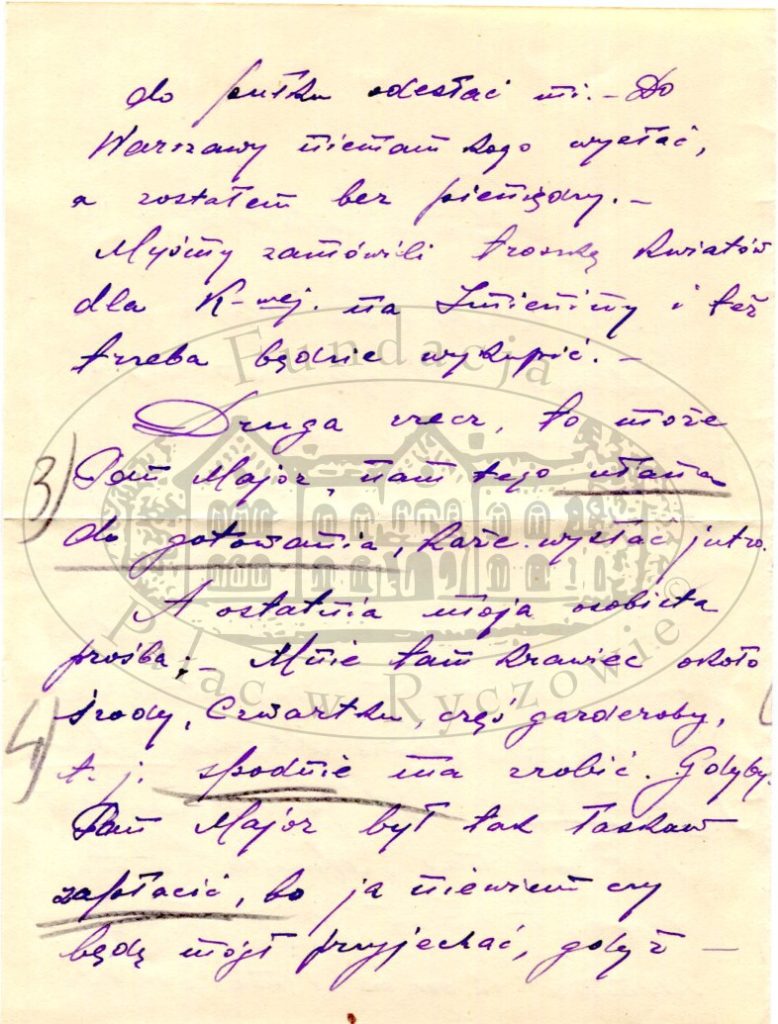 do pułku odesłać mi. – Do
Warszawy niemam kogo wysłać,
a zostałem bez pieniędzy. –
Myśmy zamówili troszkę kwiatów
dla K-wej. na Imieniny i też
trzeba będzie wykupić. –
Fundacja
Druga rzecz, to może
3) Pan Major, nam tego ułana
do gotowania, każe wysłać jutro.
A ostatnia moja osobista
prośba; – Mnie tam krawiec około
Pałac w Ryczowie ©
4) środy, Czwartku, część garderoby,
t. j. spodnie ma zrobić. Gdyby
Pan Major był tak łaskaw
zapłacić, bo ja niewiem czy
będę mógł przyjechać, gdyż –